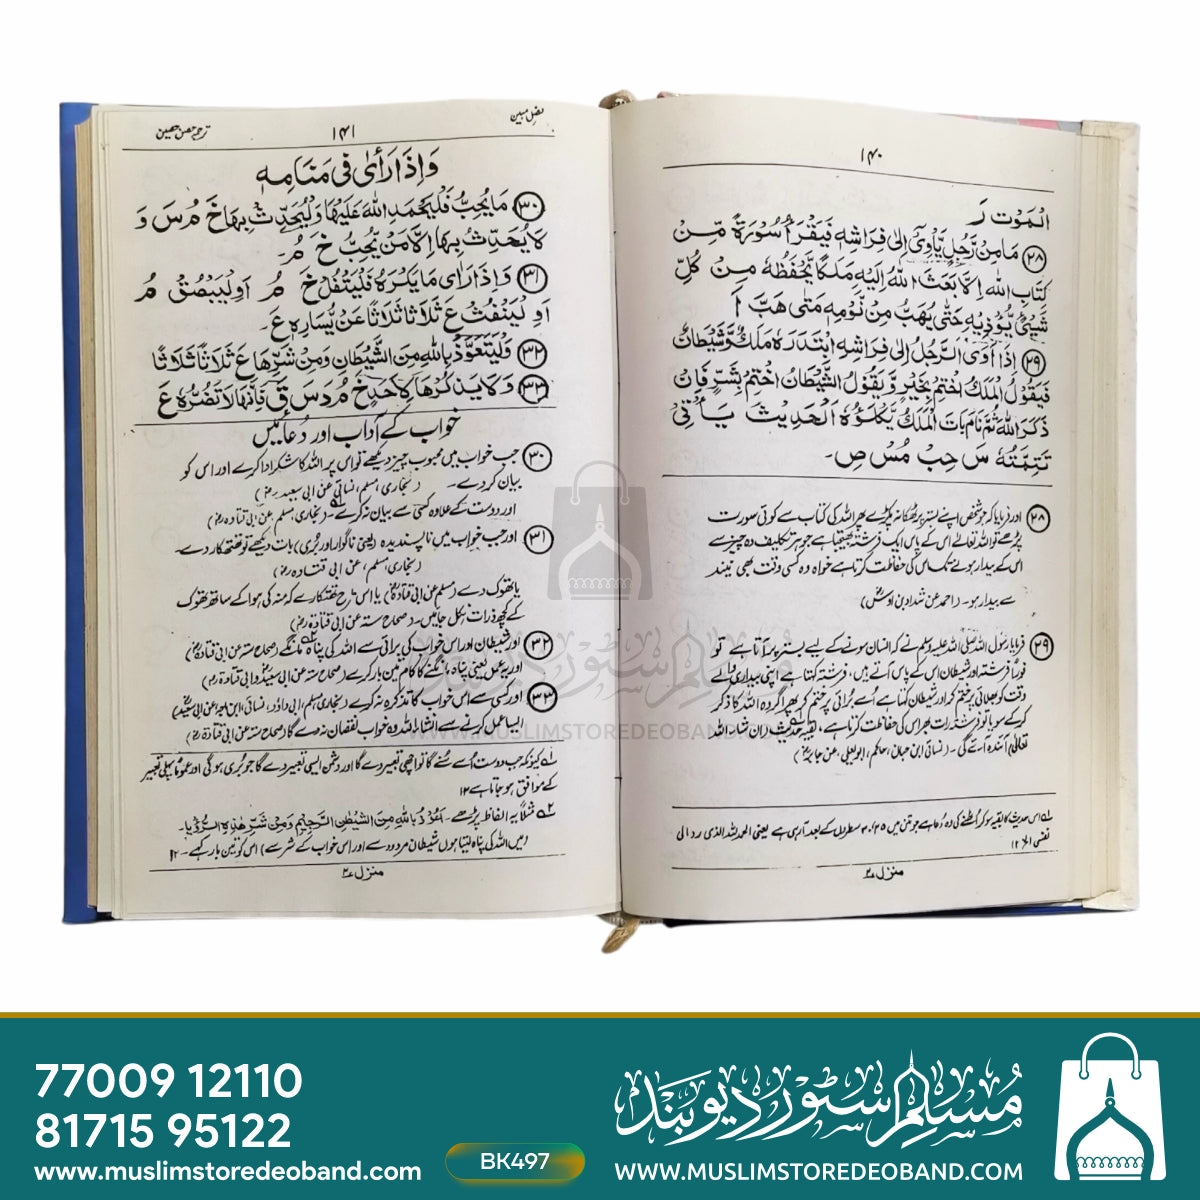 ۱۴۰
الْمَوْت رَ
۲۸ مَا مِنْ رَّجُلٍ يَّأْوِىْ اِلٰى فِرَاشِهٖ فَيَقْرَأُ سُوْرَةً مِّنْ
كِتَابِ اللّٰهِ اِلَّا بَعَثَ اللّٰهُ اِلَيْهِ مَلَكًا يَّحْفَظُهٗ مِنْ كُلِّ
شَيْئٍ يُّؤْذِيْهِ حَتّٰى يَهُبَّ مِنْ نَّوْمِهٖ مَتٰى هَبَّ أَ
۲۹ اِذَا اَوَى الرَّجُلُ اِلٰى فِرَاشِهِ ابْتَدَرَهٗ مَلَكٌ وَّشَيْطَانٌ
فَيَقُوْلُ الْمَلَكُ اخْتِمْ بِخَيْرٍ وَّيَقُوْلُ الشَّيْطَانُ اخْتِمْ بِشَرٍّ فَاِنْ
ذَكَرَ اللّٰهَ ثُمَّ نَامَ بَاتَ الْمَلَكُ يَكْلَؤُهٗ اَلْحَدِيْثَ يَأْتِىْ
تَتِمَّتُهٗ سَ حِبْ مُسْ صِ۔
۲۸ اور فرمایا کہ جو شخص اپنے بستر پر ٹھکانہ پکڑے پھر اللہ کی کتاب سے کوئی صورت
پڑھے تو اللہ تعالے اس کے پاس ایک فرشتہ بھیجتا ہے جو ہر تکلیف دہ چیز سے
اس کے بیدار ہونے تک اس کی حفاظت کرتا ہے خواہ وہ کسی وقت بھی نیند
سے بیدار ہو۔ (احمد عن شداد بن اوسؓ)
۲۹ فرمایا رسول اللہ صلی اللہ علیہ وسلم نے کہ انسان سونے کے لیے بستر پر آتا ہے تو
فوراً فرشتہ اور شیطان اس کے پاس آتے ہیں، فرشتہ کہتا ہے اپنی بیداری والے
وقت کو بھلائی پر ختم کر اور شیطان کہتا ہے اسے بُرائی پر ختم کر پھر اگر وہ اللہ کا ذکر
کر کے سویا تو فرشتہ رات بھر اس کی حفاظت کرتا ہے، بقیہ حدیث ان شاء اللہ
تعالیٰ آئندہ آئے گی۔ (نسائی ابن حبان، حاکم، ابویعلی، عن جابرؓ)
۱؎ اس حدیث کا بقیہ سو کر اُٹھنے کی دعا ہے جو متن میں سطروں کے بعد آرہی ہے یعنی الحمد للہ الذی رد الی
نفسی الخ ۱۲
منزل ۲
فضل مبین
۱۴۱
ترجمہ حصن حصین
وَاِذَا رَأٰى فِىْ مَنَامِهٖ
۳۰ مَا يُحِبُّ فَلْيَحْمَدِ اللّٰهَ عَلَيْهَا وَلْيُحَدِّثْ بِهَا خَ مُ سَ وَ
لَا يُحَدِّثْ بِهَا اِلَّا مَنْ يُّحِبُّ خَ مُ۔
۳۱ وَاِذَا رَاٰى مَا يَكْرَهُ فَلْيَتْفُلْ خَ مُ اَوْ لْيَبْصُقْ مُ
اَوِ لْيَنْفُثْ عَ ثَلَاثًا ثَلَاثًا عَنْ يَّسَارِهٖ عَ۔
۳۲ وَلْيَتَعَوَّذْ بِاللّٰهِ مِنَ الشَّيْطَانِ وَمِنْ شَرِّهَا عَ ثَلَاثًا ثَلَاثًا
۳۳ وَلَا يَذْكُرْهَا لِاَحَدٍ خَ مُ دَ سَ قَ فَاِنَّهَا لَا تَضُرُّهٗ عَ
خواب کے آداب اور دُعائیں
۳۰ جب خواب میں محبوب چیز دیکھے تو اس پر اللہ کا شکر ادا کرے اور اس کو
بیان کردے۔ (بخاری، مسلم، نسائی عن ابی سعیدؓ)
اور دوست کے علاوہ کسی سے بیان نہ کرے۔ (بخاری، مسلم، عن ابی قتادہؓ)
۳۱ اور جب خواب میں ناپسندیدہ (یعنی ناگوار اور بُری) بات دیکھے تو تھتھکار دے۔
(بخاری، مسلم، عن ابی قتادہؓ)
یا تھوک دے (مسلم عن ابی قتادہؓ) یا اس طرح تھتکارے کہ منہ کی ہوا کے ساتھ تھوک
کے کچھ ذرات نکل جائیں۔ (صحاح ستہ عن ابی قتادہؓ)
۳۲ اور شیطان اور اس خواب کی برائی سے اللہ کی پناہ مانگے (صحاح ستہ عن ابی قتادہؓ)
اور یہ عمل یعنی پناہ مانگنے کا کام تین بار کرے (صحاح ستہ عن ابی سعیدؓ وابی قتادہؓ)
۳۳ اور کسی سے اس خواب کا تذکرہ نہ کرے (بخاری، مسلم، ابی داؤد، نسائی، ابن ماجہ عن ابی سعیدؓ)
ایسا عمل کرنے سے انشاء اللہ وہ خواب نقصان نہ دے گا (صحاح ستہ عن ابی قتادہؓ)
۱؎ کیونکہ جب دوست اُسے سُنے گا تو اچھی تعبیر دے گا اور دشمن ایسی تعبیر دے گا جو بُری ہوگی اور عموماً پہلی تعبیر
کے موافق ہو جاتا ہے ۱۲
۲؎ مثلاً یہ الفاظ پڑھے۔ اَعُوْذُ بِاللّٰهِ مِنَ الشَّيْطٰنِ الرَّجِيْمِ وَمِنْ شَرِّ هٰذِهِ الرُّؤْيَا۔
(میں اللہ کی پناہ لیتا ہوں شیطان مردود سے اور اس خواب کے شر سے) اس کو تین بار کہے۔ ۱۲
منزل ۲
مسلم سٹور دیوبند
WWW.MUSLIMSTOREDEOBAND.COM
77009 12110
81715 95122
www.muslimstoredeoband.com
BK497
مسلم سٹور دیوبند
WWW.MUSLIMSTOREDEOBAND.COM